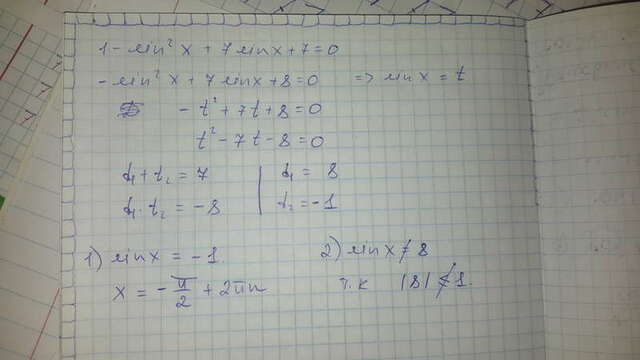 1 - sin² x + 7 sin x + 7 = 0
- sin² x + 7 sin x + 8 = 0 => sin x = t
- t² + 7t + 8 = 0
t² - 7t - 8 = 0
t₁ + t₂ = 7 | t₁ = 8
t₁ · t₂ = -8 | t₂ = -1
1) sin x = -1 2) sin x ≠ 8
x = - π/2 + 2πn т.к |8| ≰ 1.